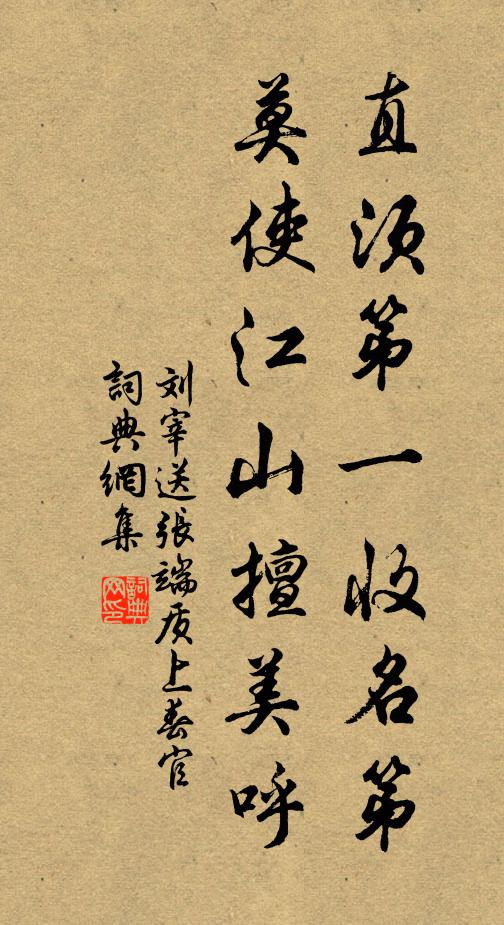 直須第一收名第
莫使江山擅美呼
刘宰送張端质上春官
詞典網集
詞典网印